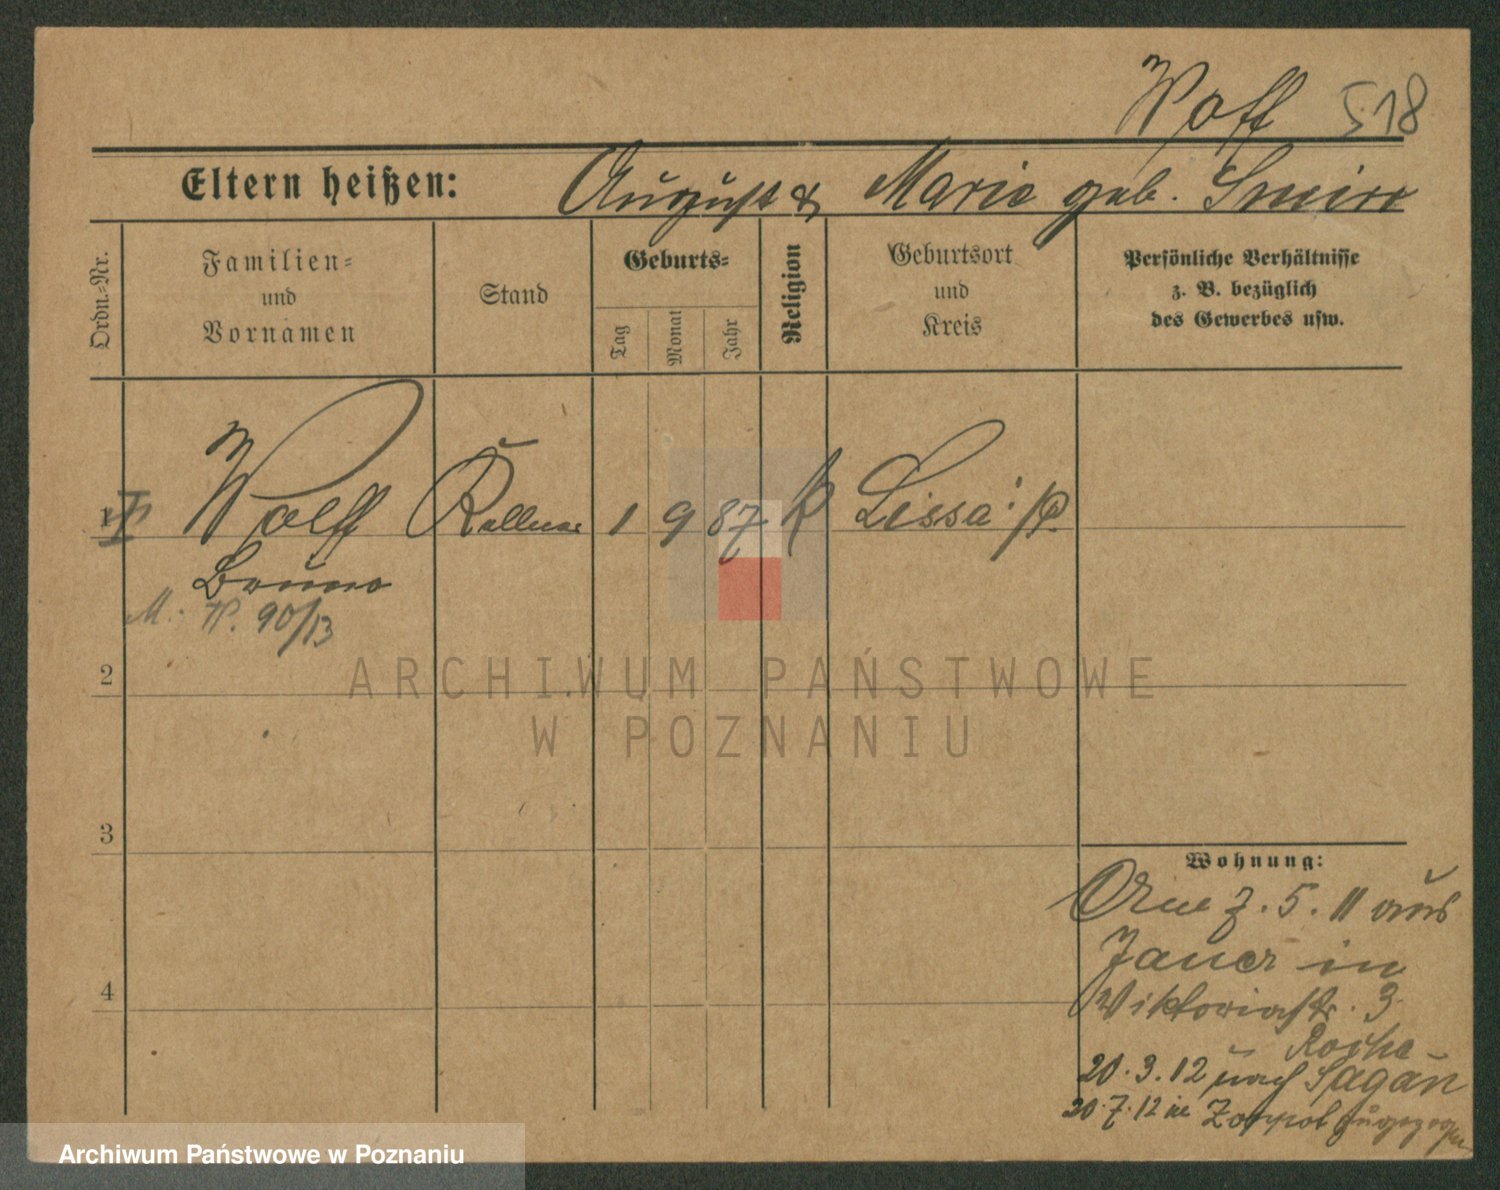 Wolff 518
Eltern heißen: August & Marie geb.
Ordn.-Nr.
Familien-
und
Vornamen
Stand
Geburts-
Tag
Monat
Jahr
Religion
Geburtsort
und
Kreis
Persönliche Verhältnisse
z. B. bezüglich
des Gewerbes usw.
1 Wolff Kellner 1 9 87 k Lissa i/P.
Bruno
M. W. 90/13
2
3
4
Wohnung:
7. 5. 11 aus
Jauer in
Viktoriastr. 3
20.3.12 nach Sagan
20.7.12 in Zoppot zugezogen
ARCHIWUM PAŃSTWOWE
W POZNANIU
Archiwum Państwowe w Poznaniu